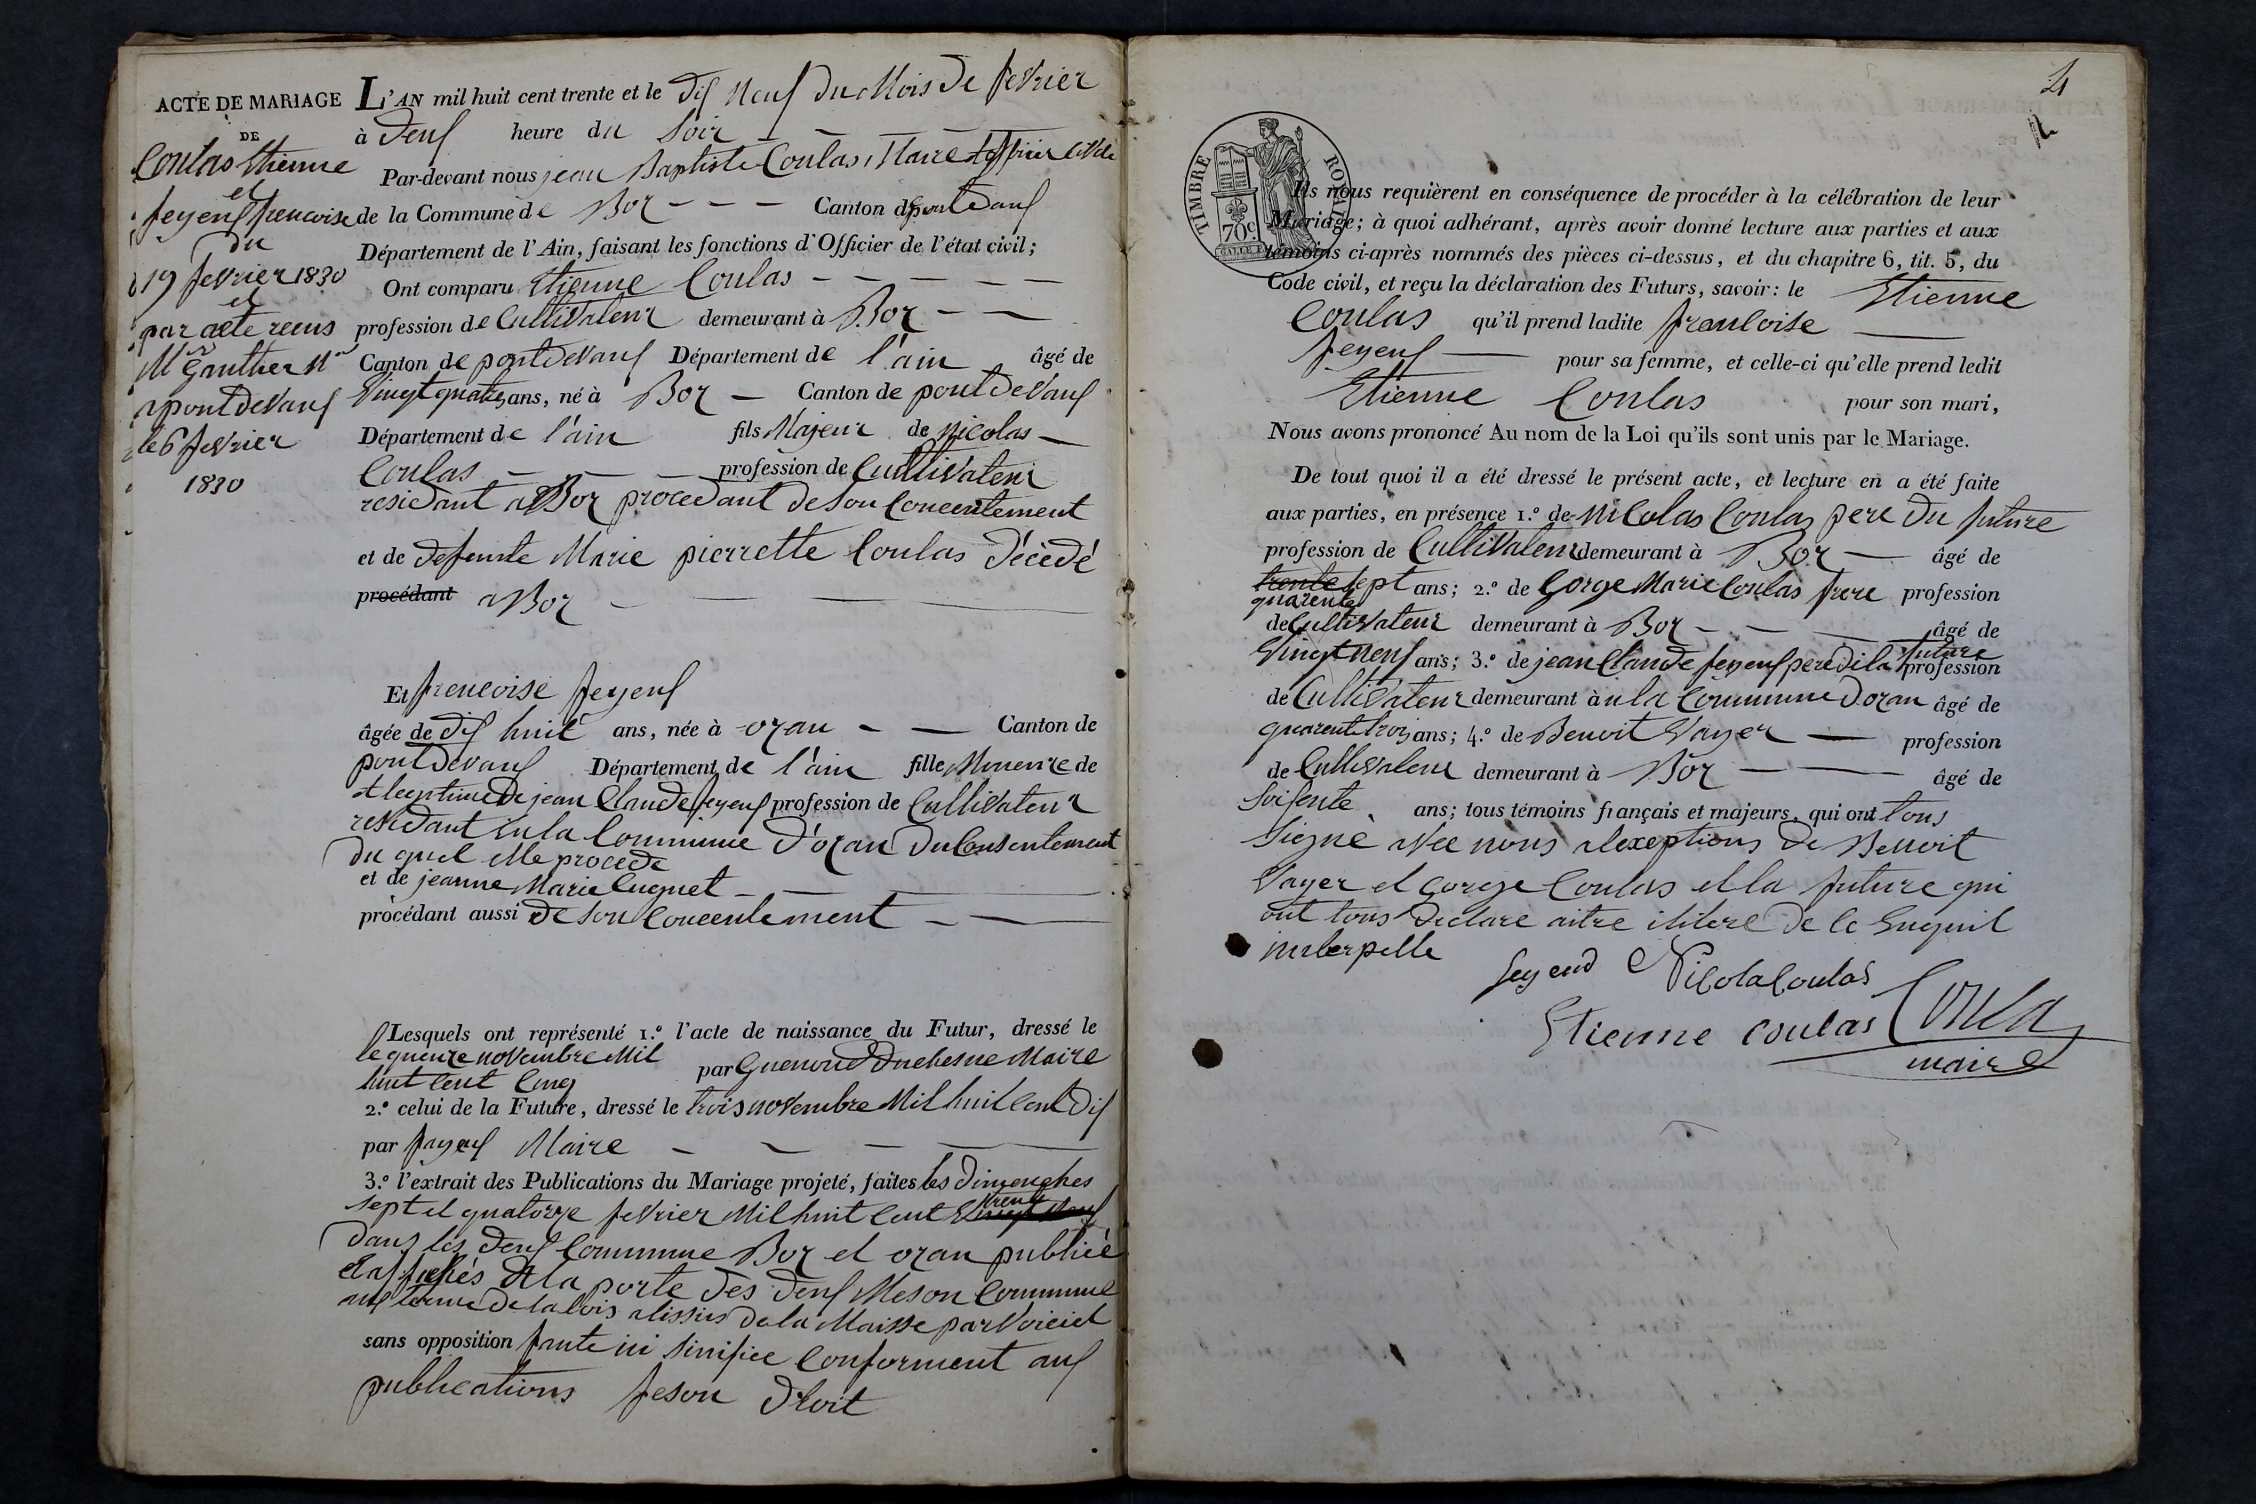 ACTE DE MARIAGE
DE
Coulas Etienne
et
feyeux francoise
du
19 fevrier 1830
et
par acte recus
Mr Gauther Nre
a pont de Vaux
le 6 fevrier
1830
L'AN mil huit cent trente et le dix neuf du Mois de fevrier
à deux heure du soir
Par-devant nous jean Baptiste Coulas, Maire officier civile
de la Commune de Boz Canton de pont de Vaux
Département de l'Ain, faisant les fonctions d'Officier de l'état civil;
Ont comparu Etienne Coulas
profession de Cultivateur demeurant à Boz
Canton de pont de Vaux Département de l'ain âgé de
Vingt quatre ans, né à Boz Canton de pont de Vaux
Département de l'ain fils Majeur de Nicolas
Coulas profession de Cultivateur
residant a Boz procedant de son Concentement
et de defeunte Marie pierrette Coulas décédé
procédant a Boz
Et francoise feyeux
âgée de dix huit ans, née à ozan Canton de
pont de vaux Département de l'ain fille Mineure de
et legitime de jean Claude feyeux profession de Cultivateur
residant en la Commune d'ozan du Consentement
du quel elle procede
et de jeanne Marie Cugnet
procédant aussi de son Concentement
Lesquels ont représenté 1.º l'acte de naissance du Futur, dressé le
le quenze novembre Mil
huit Cent Cinq par Guenond Duchesne Maire
2.º celui de la Future, dressé le trois novembre Mil huit Cent dix
par fayeux Maire
3.º l'extrait des Publications du Mariage projeté, faites les dimenches
trente
sept et quatorze fevrier Mil huit Cent Vingt Neuf
dans les deux Commune Boz et ozan publiée
et affichés a la porte des deux Meson Commune
aux terme de la lois a lissus de la Maisse par
sans opposition faute ici sinifiee Conforment aux
publications feson droit
4
TIMBRE ROYAL
70c.
Ils nous requièrent en conséquence de procéder à la célébration de leur
Mariage; à quoi adhérant, après avoir donné lecture aux parties et aux
témoins ci-après nommés des pièces ci-dessus, et du chapitre 6, tit. 5, du
Code civil, et reçu la déclaration des Futurs, savoir: le Etienne
Coulas qu'il prend ladite francoise
feyeux pour sa femme, et celle-ci qu'elle prend ledit
Etienne Coulas pour son mari,
Nous avons prononcé Au nom de la Loi qu'ils sont unis par le Mariage.
De tout quoi il a été dressé le présent acte, et lecture en a été faite
aux parties, en présence 1.º de Nicolas Coulas pere du future
profession de Cultivateur demeurant à Boz âgé de
trente sept ans; 2.º de Gorge Marie Coulas frere profession
quarente
de Cultivateur demeurant à Boz âgé de
Vingt neuf ans; 3.º de jean Claude feyeux pere de la future profession
de Cultivateur demeurant à en la Commune d'ozan âgé de
quarente trois ans; 4.º de Benoit Vayer profession
de Cultivateur demeurant à Boz âgé de
soixente ans; tous témoins français et majeurs, qui ont tous
signé avec nous a lexeptions de Benoit
Vayer et Gorge Coulas et la future qui
ont tous declare aitre ilitere de ce
interpelle
feyeud Nicola Coulas
Etienne coulas Coula
maire